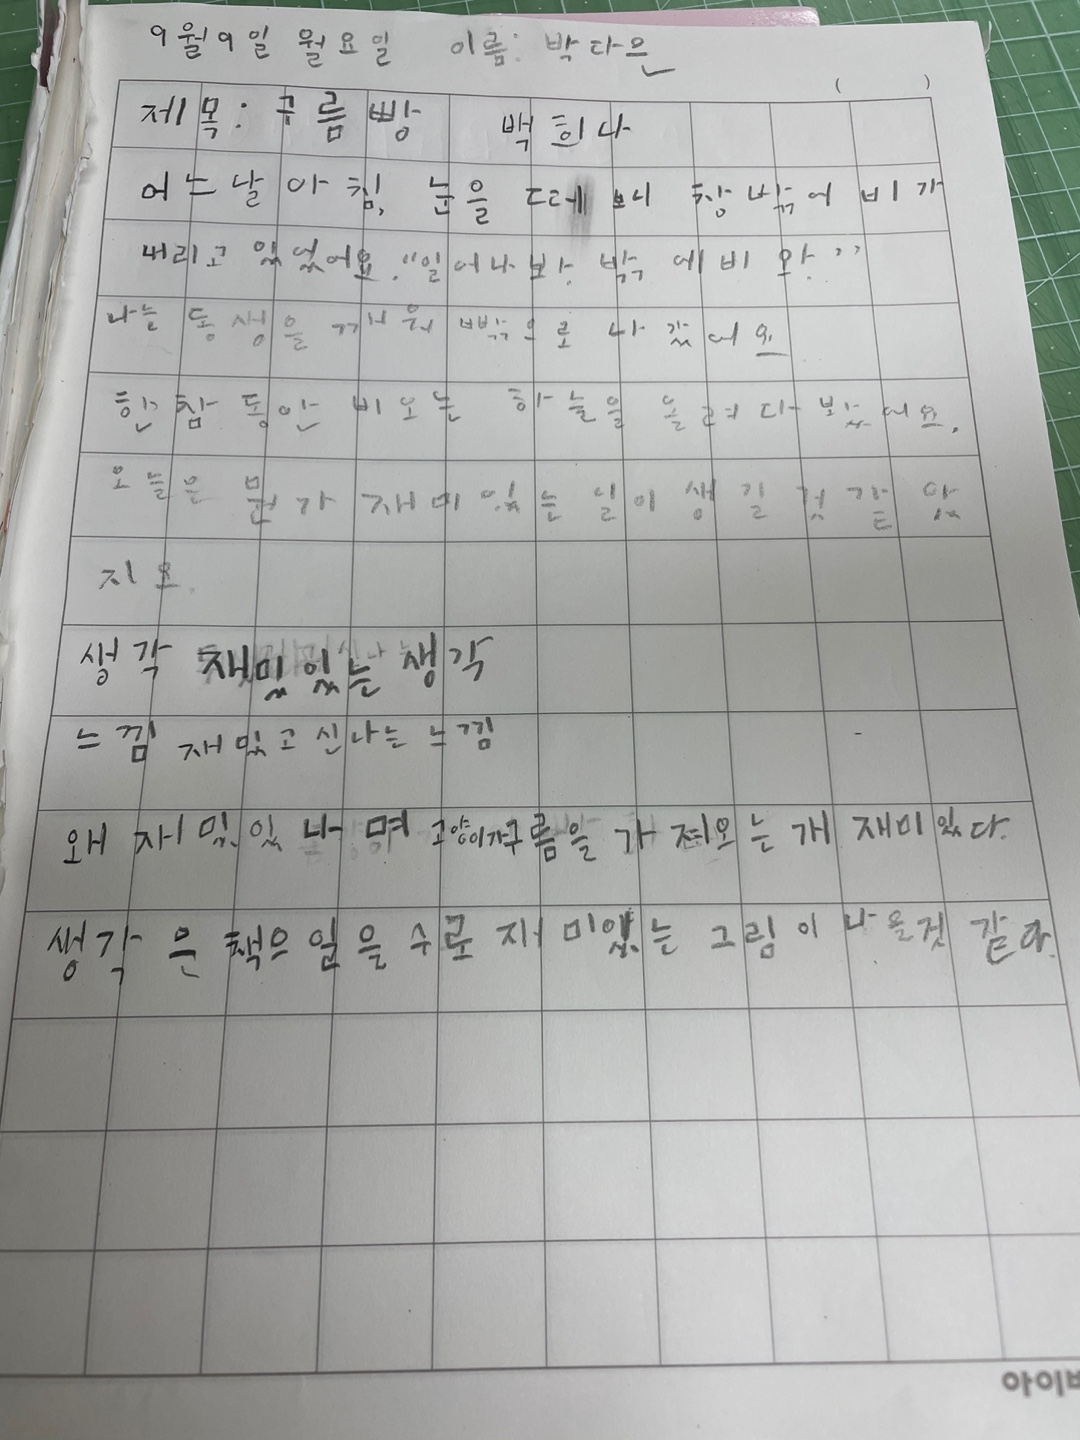 9월9일 월요일 이름: 박다은
( )
제목: 구름빵 백희나
어느날 아침, 눈을 보니 창밖에 비가
내리고 있었어요. "일어나봐. 밖에비 와."
나는 동생을 깨워 빢으로 나갔어요
한참 동안 비오는 하늘을 올려다 봤어요.
오늘은 뭔가 재미있는 일이 생길 것 같 았
지요.
생각 재밌있는 생각
느낌 재밌고 신나는 느낌
왜 재밌있냐면 고양이가구름을 가져오는개 재미있다.
생각은 책으 읽을수로 재미있는 그림이 나올것 같다.
아이비